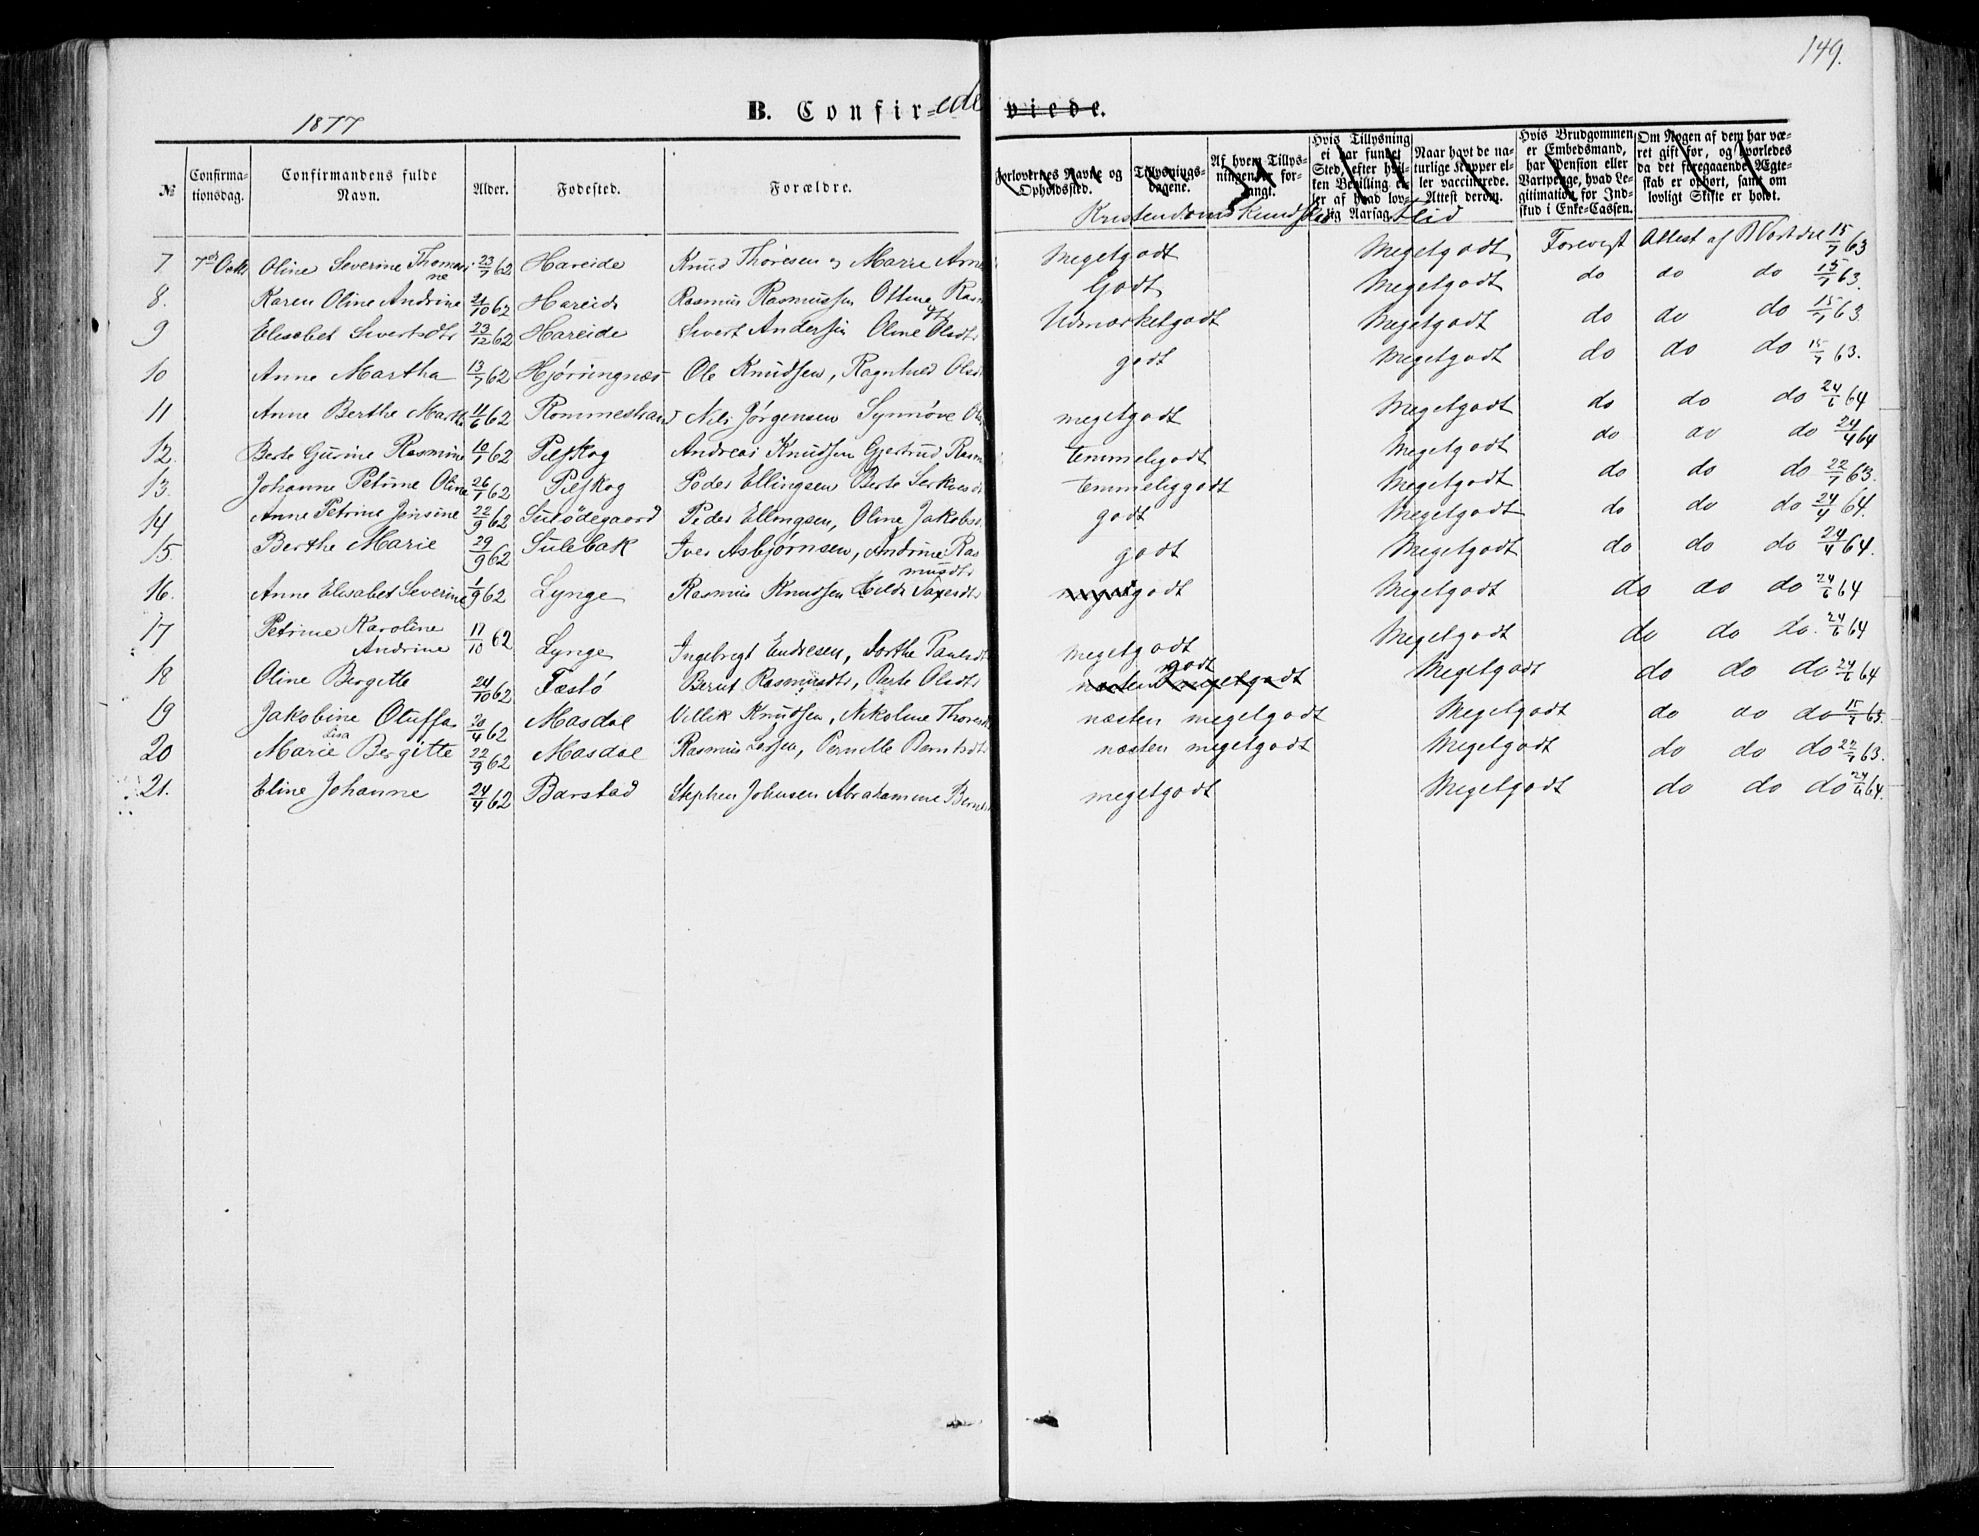 149.
1877
B. Confir=ede viede.
№ Confirma-tionsdag. Confirmandens fulde Navn. Alder. Fødested. Forældre. Forlovernes Navne og Opholdssted. Tillysnings-dagene. Af hvem Tillys-ningen er for-langt. Hvis Tillysning ei har fundet Sted, efter hvil-ken Bevilling el-ler af hvad lov-lig Aarsag. Naar havt de na-turlige Kopper el-ler vaccinerede. Attest derom. Hvis Brudgommen er Embedsmand, har Pension eller Vartpenge, hvad Le-gitimation for Ind-skud i Enke-Cassen. Om Nogen af dem har væ-ret gift før, og hvorledes da det foregaaende Ægte-skab er ophørt, samt om lovligt Skifte er holdt.
Kristendomskundskab Flid
7 7de Octb Oline Severine Thomasine 23/7 62 Hareide Knud Thoresen og Marie Arne Megetgodt Megetgodt Forevist Attest af 15/7 63
8. Karen Oline Andrine 21/10 62 Hareide Rasmus Rasmussen Oline Ras Godt Megetgodt do do do 15/7 63.
9 Elisabet Sivertsdtr 23/12 62 Hareide Sivert Andersen Oline Olsdtr Udmærketgodt Megetgodt do do do 15/7 63
10 Anne Martha 13/7 62 Hjørringnæs Ole Knudsen, Ragnhild Olsdt godt Megetgodt do do do 15/7 63.
11 Anne Berthe Marth 4/6 62 Rommestrand Nils Jørgensen Synnøve Ol megetgodt Megetgodt do do do 24/6 64
12. Berte Gurine Rasmine 10/1 62 Pilskog Andreas Knudsen Gjertrud Rasm temmeligodt Megetgodt do do do 24/4 64
13. Johanne Petrine Oline 26/1 62 Pilskog Peder Ellingsen Berte temmeliggodt Megetgodt do do do 22/7 63.
14 Anne Petrine Jensine 22/9 62 Sulødegaard Peder Ellingsen, Oline Jakobs godt Megetgodt do do do 24/4 64.
15. Berthe Marie 29/9 62 Sulebak Iver Asbjørnsen, Andrine Rasmusdtr godt Megetgodt do do do 24/4 64.
16. Anne Elisabet Severine 1/9 62 Lynge Rasmus Knudsen Hilde megetgodt Megetgodt do do do 24/6 64
17 Petrine Karoline Andrine 17/10 62 Lynge Ingebregt Endresen, Dorthe Paulsdt megetgodt Megetgodt do do do. 24/6 64
18 Oline Bergitte 24/10 62 Festø Bernt Rasmusdtr, Berte Olsdtr næsten megetgodt godt Megetgodt do do do 24/6 64
19 Jakobine Oluffa 20/4 62 Masdal Villik Knudsen, Nikoline Thores næsten megetgodt Megetgodt do do do 15/7 63.
20 Marie Lisa Bergitte 22/9 62 Masdal Rasmus Larsen, Pernille Berntsdtr næsten megetgodt Megetgodt do do do 22/7 63.
21. Eline Johanne 24/4 62 Barstad Stephen Johnsen Abrahamine Bernt megetgodt Megetgodt do do do 24/6 64.